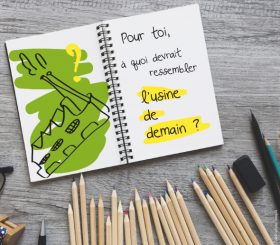 ?
Pour toi,
à quoi devrait
ressembler
l'usine
de
demain ?